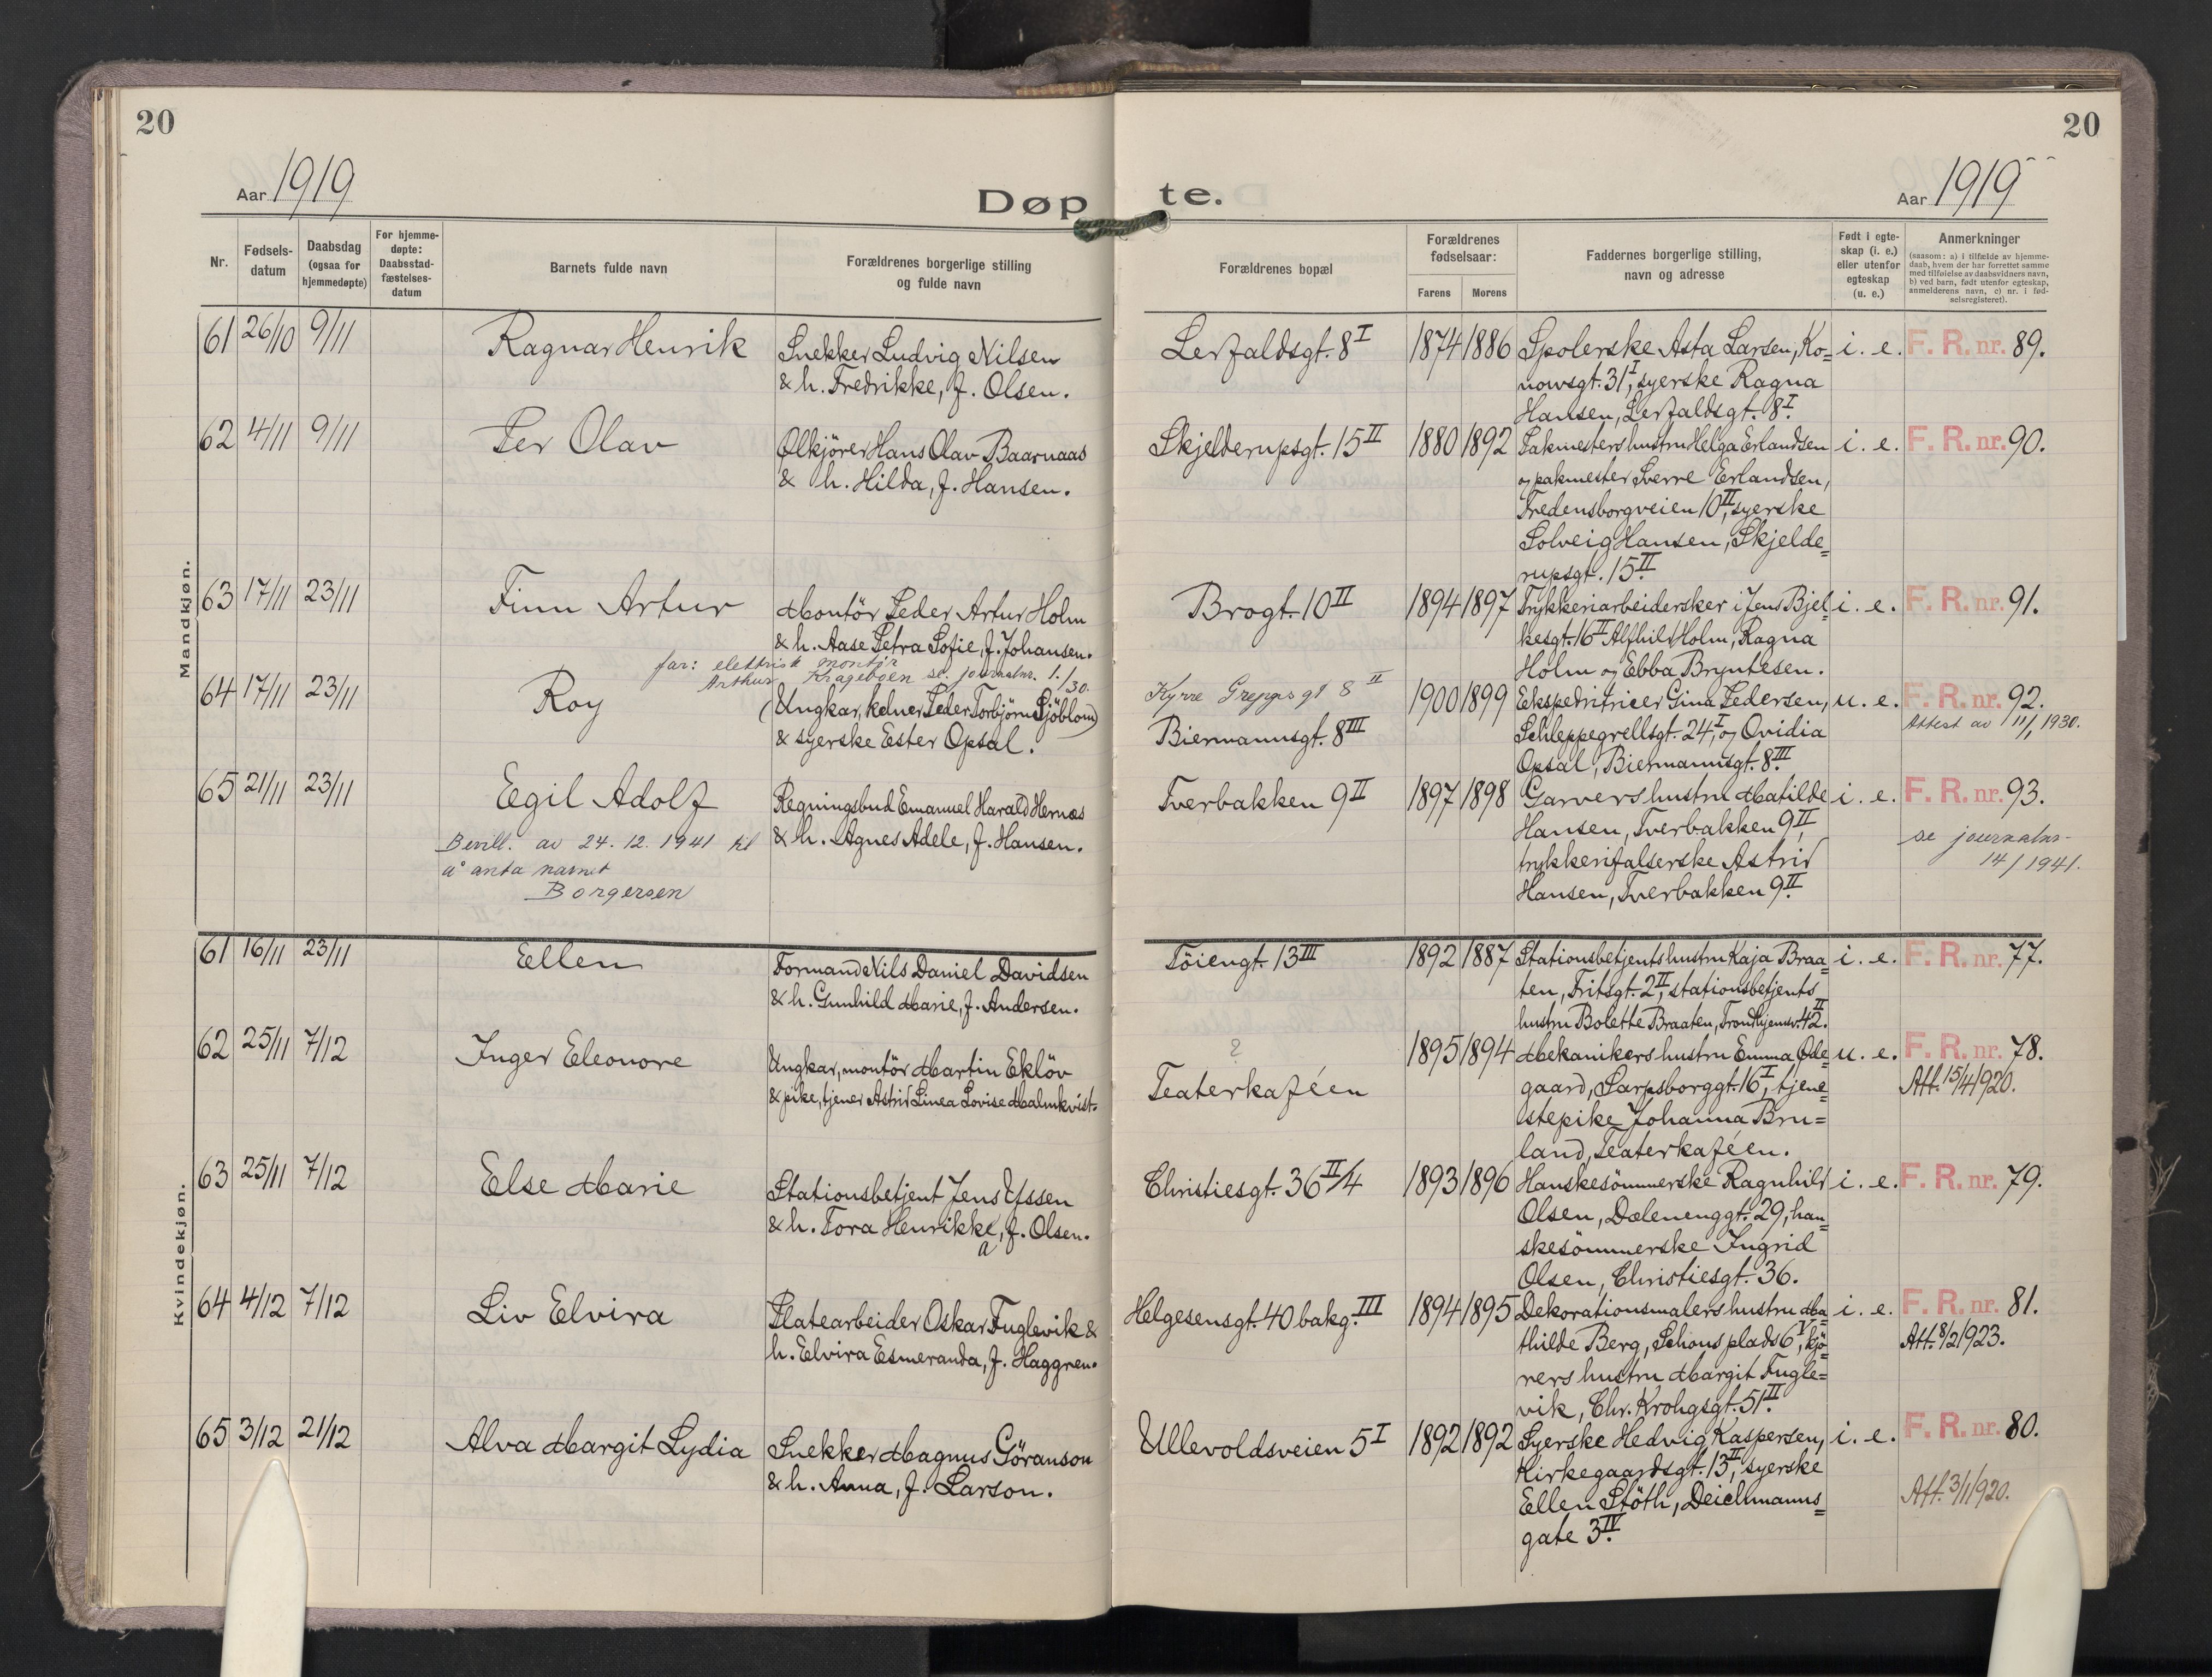 20
20
Aar 1919
Døpte.
Aar 1919
Nr.
Fødsels-
datum
Daabsdag
(ogsaa for
hjemmedøpte)
For hjemme-
døpte:
Daabsstad-
fæstelses-
datum
Barnets fulde navn
Forældrenes borgerlige stilling
og fulde navn
Forældrenes bopæl
Forældrenes
fødselsaar:
Farens
Morens
Faddernes borgerlige stilling,
navn og adresse
Født i egte-
skap (i. e.)
eller utenfor
egteskap
(u. e.)
Anmerkninger
(saasom: a) i tilfælde av hjemme-
daab, hvem der har forrettet samme
med tilføielse av daabsvidners navn,
b) ved barn, født utenfor egteskap,
anmelderens navn, c) nr. i fød-
selsregisteret).
Mandkjøn.
61 26/10 9/11 Ragnar Henrik
Snekker Ludvig Nilsen
& h. Fredrikke, f. Olsen.
Lerfaldsgt. 8 I
1874 1886
Spolerske Asta Larsen, Ko=
nowsgt. 31 I, syerske Ragna
Hansen, Lerfaldsgt. 8 I.
i. e.
F. R. nr. 89.
62 4/11 9/11 Per Olav
Ølkjører Hans Olav Baarnaas
& h. Hilda, f. Hansen.
Skjelderupsgt. 15 II
1880 1892
Pakmesters hustru Helga Erlandsen
og pakmester Sverre Erlandsen,
Fredensborgveien 10 II, syerske
Solveig Hansen, Skjelde=
rupsgt. 15 II.
i. e.
F. R. nr. 90.
63 17/11 23/11 Finn Artur
Montör Peder Artur Holm
& h. Aase Petra Sofie, f. Johansen.
Brogt. 10 II
1894 1897
Trykkeriarbeidersker i Jens Bjel
kesgt. 16 II Alfhild Holm, Ragna
Holm og Ebba Bryntesen.
i. e.
F. R. nr. 91.
far: elektrisk montör
Arthur Krageboen se journalnr. 1./30.
64 17/11 23/11 Roy
(Ungkar, kelner Peder Torbjörn Sjöblom)
& syerske Ester Opsal.
Kyrre Greppsgt 8 II
Biermannsgt. 8 III
1900 1899
Ekspeditricer Gina Pedersen,
Schleppegrellsgt. 24 I, og Ovidia
Opsal, Biermannsgt. 8 III.
u. e.
F. R. nr. 92.
Attest av 11/1 1930.
65 21/11 23/11 Egil Adolf
Bevill. av 24.12.1941 til
å anta navnet
Borgersen
Regningsbud Emanuel Harald Hernæs
& h. Agnes Adele, f. Hansen.
Tverbakken 9 II
1897 1898
Garvers hustru Matilde
Hansen, Tverbakken 9 II,
trykkerifalserske Astrid
Hansen, Tverbakken 9 II.
i. e.
F. R. nr. 93.
se journalnr.
14/1941.
Kvindekjøn.
61 16/11 23/11 Ellen
Formand Nils Daniel Davidsen
& h. Gunhild Marie, f. Andersen.
Töiengt. 13 III
1892 1887
Stationsbetjents hustru Kaja Braa=
ten, Fritsgt. 2 II, stationsbetjents
hustru Bolette Braaten, Trondhjemsv. 42 II.
i. e.
F. R. nr. 77.
62 25/11 7/12 Inger Eleonore
Ungkar, montör Martin Eklöv
& pike, tjener Astrid Linea Lovise Malmkvist.
?
Teaterkaféen
1895 1894
Mekanikers hustru Emma Øde=
gaard, Sarpsborggt. 16 I, tjene=
stepike Johanna Bru=
land, Teaterkaféen.
u. e.
F. R. nr. 78.
Att. 15/4 1920.
63 25/11 7/12 Else Marie
Stationsbetjent Jens Yssen
& h. Tora Henrikke, f. Olsen.
a
Christiesgt. 36 II/4
1893 1896
Hanskesömmerske Ragnhild
Olsen, Dælenenggt. 29, han=
skesömmerske Ingrid
Olsen, Christiesgt. 36.
i. e.
F. R. nr. 79.
64 4/12 7/12 Liv Elvira
Platearbeider Oskar Fuglevik &
h. Elvira Esmeranda, f. Haggren.
Helgesensgt. 40 bakg. III
1894 1895
Dekorationsmalers hustru Ma=
thilde Berg, Schous plads 6 V, kjö=
rers hustru Margit Fugle=
vik, Chr. Krohgsgt. 51 II.
i. e.
F. R. nr. 81.
Att. 8/2 1923.
65 3/12 21/12 Alva Margit Lydia
Snekker Magnus Göranson
& h. Anna, f. Larson.
Ullevoldsveien 5 I
1892 1892
Syerske Hedvig Kaspersen,
Kirkegaardsgt. 13 II, syerske
Ellen Stöth, Deichmanns=
gate 3 IV.
i. e.
F. R. nr. 80.
Att. 3/1 1920.